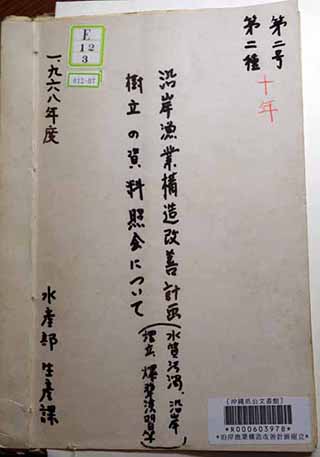 第二号
第二種
十年
沿岸漁業構造改善計画
樹立の資料照会について
(水質汚濁、沿岸
埋立、爆撃演習等)
一九六八年度
水産部 生産課
E
12
3
012-07
[沖縄県公文書館]
*R000603978*
*沿岸漁業構造改善計画樹立*